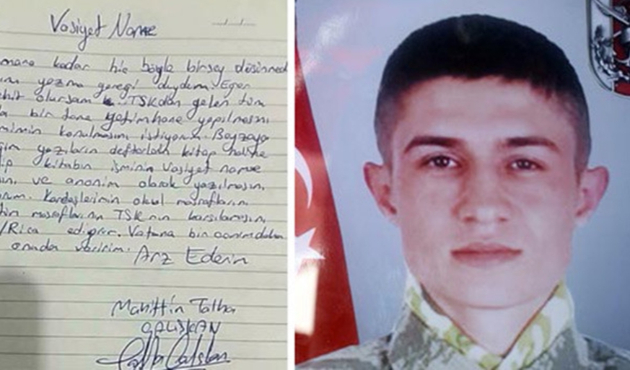 Vasiyet Name
kadar hiç böyle birşey düşünmed
yazma gereği duydum. Eğer
olursam TSKdan gelen tüm
bir tane yetimhane yapılmasını
konulmasını istiyorum. Beyzaya
yazıların defterlati kitap haline
kitabın isminin Vasiyet name
ve anonim olarak yazılmasın,
Kardeşlerimin okul masraflarını
masraflarını TSK'nın karşılamasını,
/Rica ediyorum. Vatana bin canımdahan
anada veririm. Arz Ederim
Talha
ÇALIŞKAN